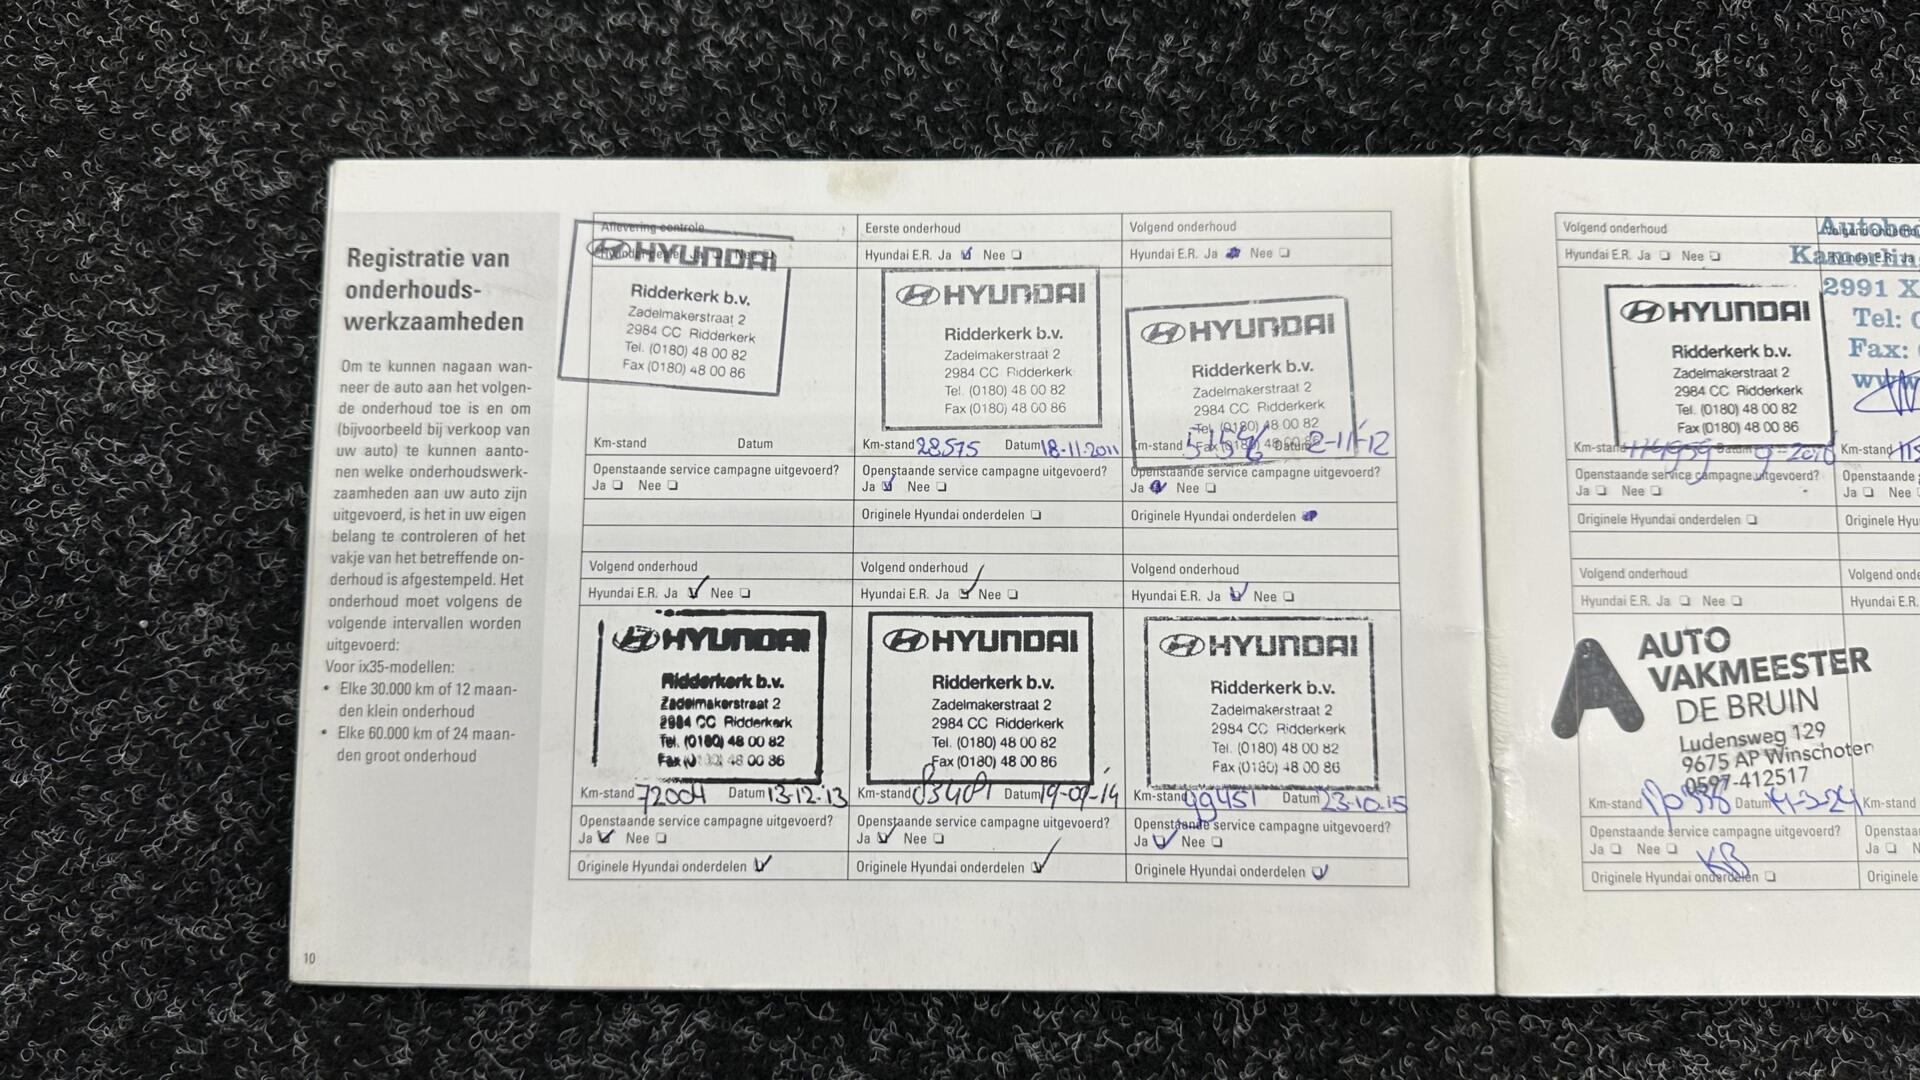 Registratie van
onderhouds-
werkzaamheden
Om te kunnen nagaan wan-
neer de auto aan het volgen-
de onderhoud toe is en om
(bijvoorbeeld bij verkoop van
uw auto) te kunnen aanto-
nen welke onderhoudswerk-
zaamheden aan uw auto zijn
uitgevoerd, is het in uw eigen
belang te controleren of het
vakje van het betreffende on-
derhoud is afgestempeld. Het
onderhoud moet volgens de
volgende intervallen worden
uitgevoerd:
Voor ix35-modellen:
• Elke 30.000 km of 12 maan-
den klein onderhoud
• Elke 60.000 km of 24 maan-
den groot onderhoud
10
Aflevering controle
HYUNDAI
Ridderkerk b.v.
Zadelmakerstraat 2
2984 CC Ridderkerk
Tel. (0180) 48 00 82
Fax (0180) 48 00 86
Km-stand Datum
Openstaande service campagne uitgevoerd?
Ja Nee
Eerste onderhoud
Hyundai E.R. Ja Nee
HYUNDAI
Ridderkerk b.v.
Zadelmakerstraat 2
2984 CC Ridderkerk
Tel. (0180) 48 00 82
Fax (0180) 48 00 86
Km-stand 28575 Datum 18-11-2011
Openstaande service campagne uitgevoerd?
Ja Nee
Originele Hyundai onderdelen
Volgend onderhoud
Hyundai E.R. Ja Nee
HYUNDAI
Ridderkerk b.v.
Zadelmakerstraat 2
2984 CC Ridderkerk
Tel. (0180) 48 00 82
Fax (0180) 48 00 86
Km-stand Datum 2-11-'12
Openstaande service campagne uitgevoerd?
Ja Nee
Originele Hyundai onderdelen
Volgend onderhoud
Hyundai E.R. Ja Nee
HYUNDAI
Ridderkerk b.v.
Zadelmakerstraat 2
2984 CC Ridderkerk
Tel. (0180) 48 00 82
Fax 48 00 86
Km-stand 72004 Datum 13-12-'13
Openstaande service campagne uitgevoerd?
Ja Nee
Originele Hyundai onderdelen
Volgend onderhoud
Hyundai E.R. Ja Nee
HYUNDAI
Ridderkerk b.v.
Zadelmakerstraat 2
2984 CC Ridderkerk
Tel. (0180) 48 00 82
Fax (0180) 48 00 86
Km-stand Datum
Openstaande service campagne uitgevoerd?
Ja Nee
Originele Hyundai onderdelen
Volgend onderhoud
Hyundai E.R. Ja Nee
HYUNDAI
Ridderkerk b.v.
Zadelmakerstraat 2
2984 CC Ridderkerk
Tel. (0180) 48 00 82
Fax (0180) 48 00 86
Km-stand 99451 Datum 23-10-15
Openstaande service campagne uitgevoerd?
Ja Nee
Originele Hyundai onderdelen
Volgend onderhoud
Hyundai E.R. Ja Nee
HYUNDAI
Ridderkerk b.v.
Zadelmakerstraat 2
2984 CC Ridderkerk
Tel. (0180) 48 00 82
Fax (0180) 48 00 86
Km-stand Datum
Openstaande service campagne uitgevoerd?
Ja Nee
Originele Hyundai onderdelen
2991 X
Tel:
Fax:
Km-stand
Openstaande
Ja Nee
Originele Hyu
Volgend onderhoud
Hyundai E.R. Ja Nee
AUTO
VAKMEESTER
DE BRUIN
Ludensweg 129
9675 AP Winschoten
0597-412517
Km-stand Datum
Openstaande service campagne uitgevoerd?
Ja Nee
KB
Originele Hyundai onderdelen
Volgend onde
Hyundai E.R.
Km-stand
Openstaa
Ja N
Originele